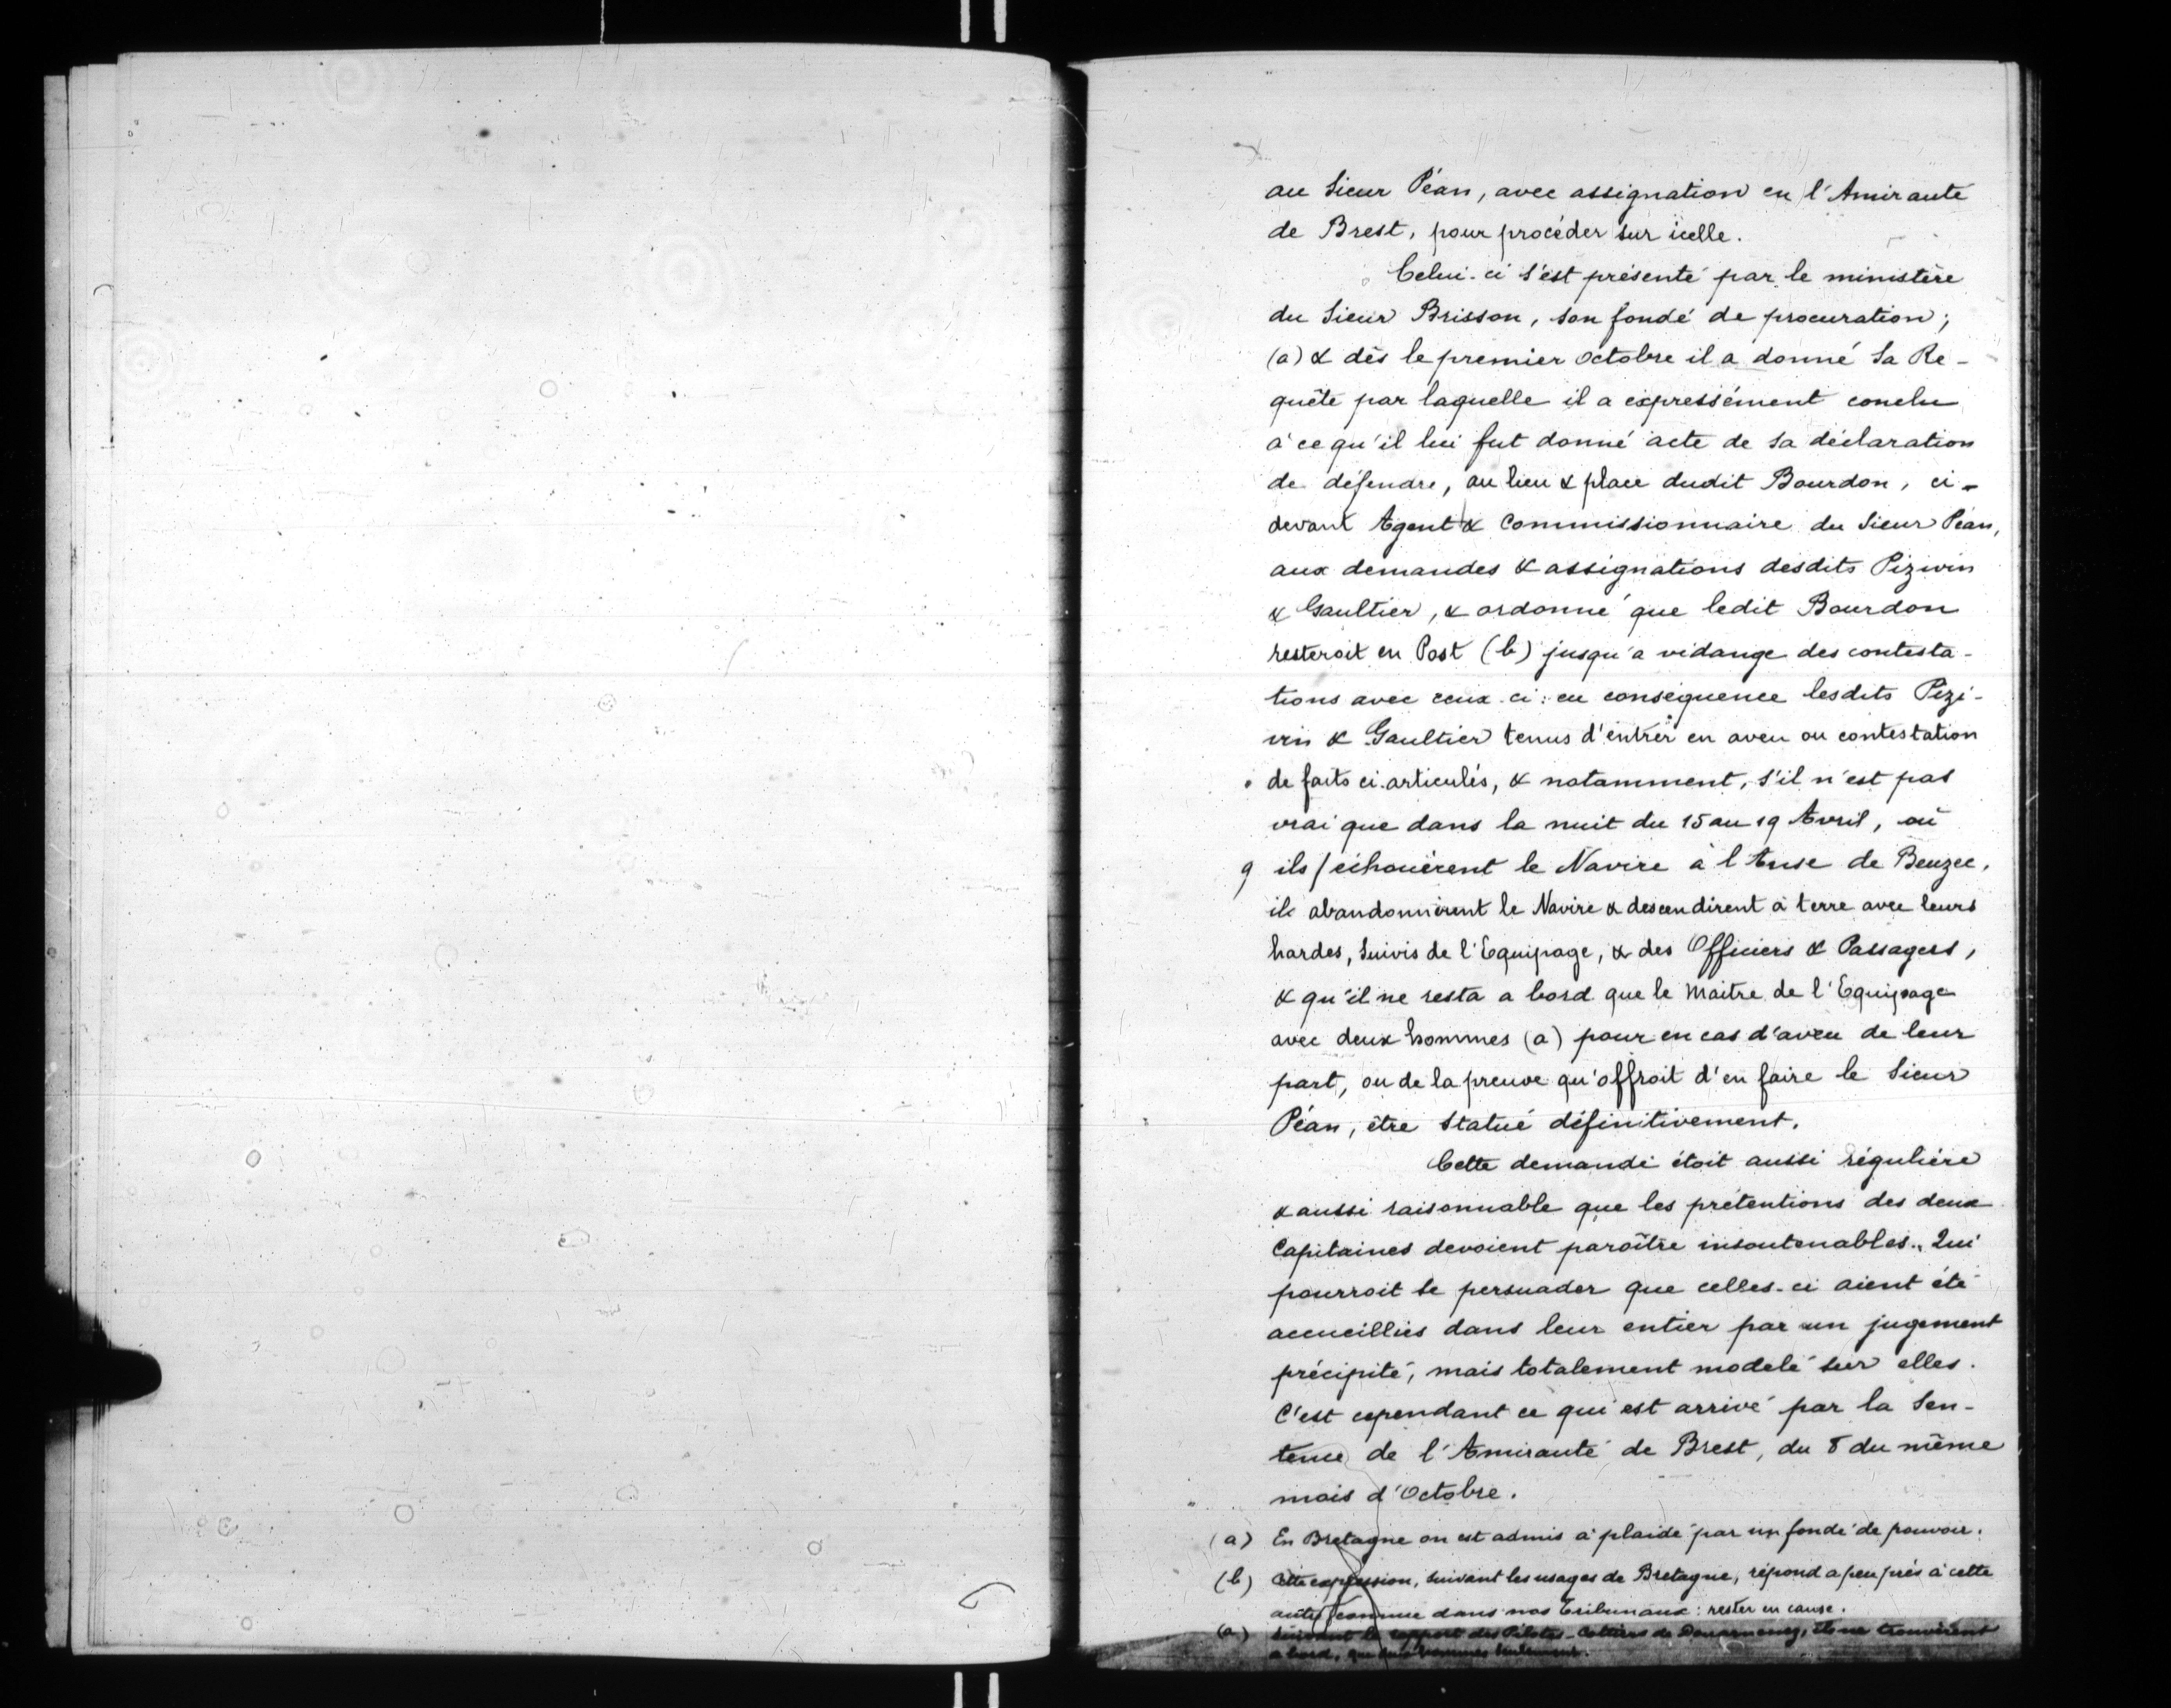 au Sieur Péan, avec assignation en l'Amirauté
de Brest, pour procéder sur icelle.
Celui-ci s'est présenté par le ministère
du Sieur Brisson, son fondé de procuration;
(a) & dès le premier octobre il a donné sa Re-
quête par laquelle il a expressément conclu
à ce qu'il lui fut donné acte de sa déclaration
de défendre, au lieu & place dudit Bourdon, ci-
devant Agent & Commissionnaire du Sieur Péan,
aux demandes & assignations desdits Pizivin
& Gaultier, & ordonné que ledit Bourdon
resteroit en Post (b) jusqu'a vidange des contesta-
tions avec ceux-ci: en conséquence lesdits Pizi-
vin & Gaultier tenus d'entrer en aveu ou contestation
de faits ci articulés, & notamment, s'il n'est pas
vrai que dans la nuit du 15 au 19 Avril, où
9 ils / échouèrent le Navire à l'Anse de Beuzec,
ils abandonnèrent le Navire & descendirent à terre avec leurs
hardes, suivis de l'Equipage, & des Officiers & Passagers,
& qu'il ne resta a bord que le Maitre de l'Equipage
avec deux hommes (a) pour en cas d'aveu de leur
part, ou de la preuve qu'offroit d'en faire le Sieur
Péan, être statué définitivement.
Cette demande étoit aussi régulière
& aussi raisonnable que les prétentions des deux
Capitaines devoient paroître insoutenables. Qui
pourroit se persuader que celles-ci aient été
accueillies dans leur entier par un jugement
précipité, mais totalement modelé sur elles.
C'est cependant ce qui est arrivé par la Sen-
tence de l'Amirauté de Brest, du 8 du même
mois d'Octobre.
(a) En Bretagne on est admis à plaidé par un fondé de pouvoir.
(b) Cette expression, suivant les usages de Bretagne, répond a peu près à cette
autre connue dans nos Tribunaux: rester en cause.
(a) Suivant le rapport des Pilotes-Cottiers de Douarnenez, ils ne trouvèrent
a bord, que deux hommes seulement.